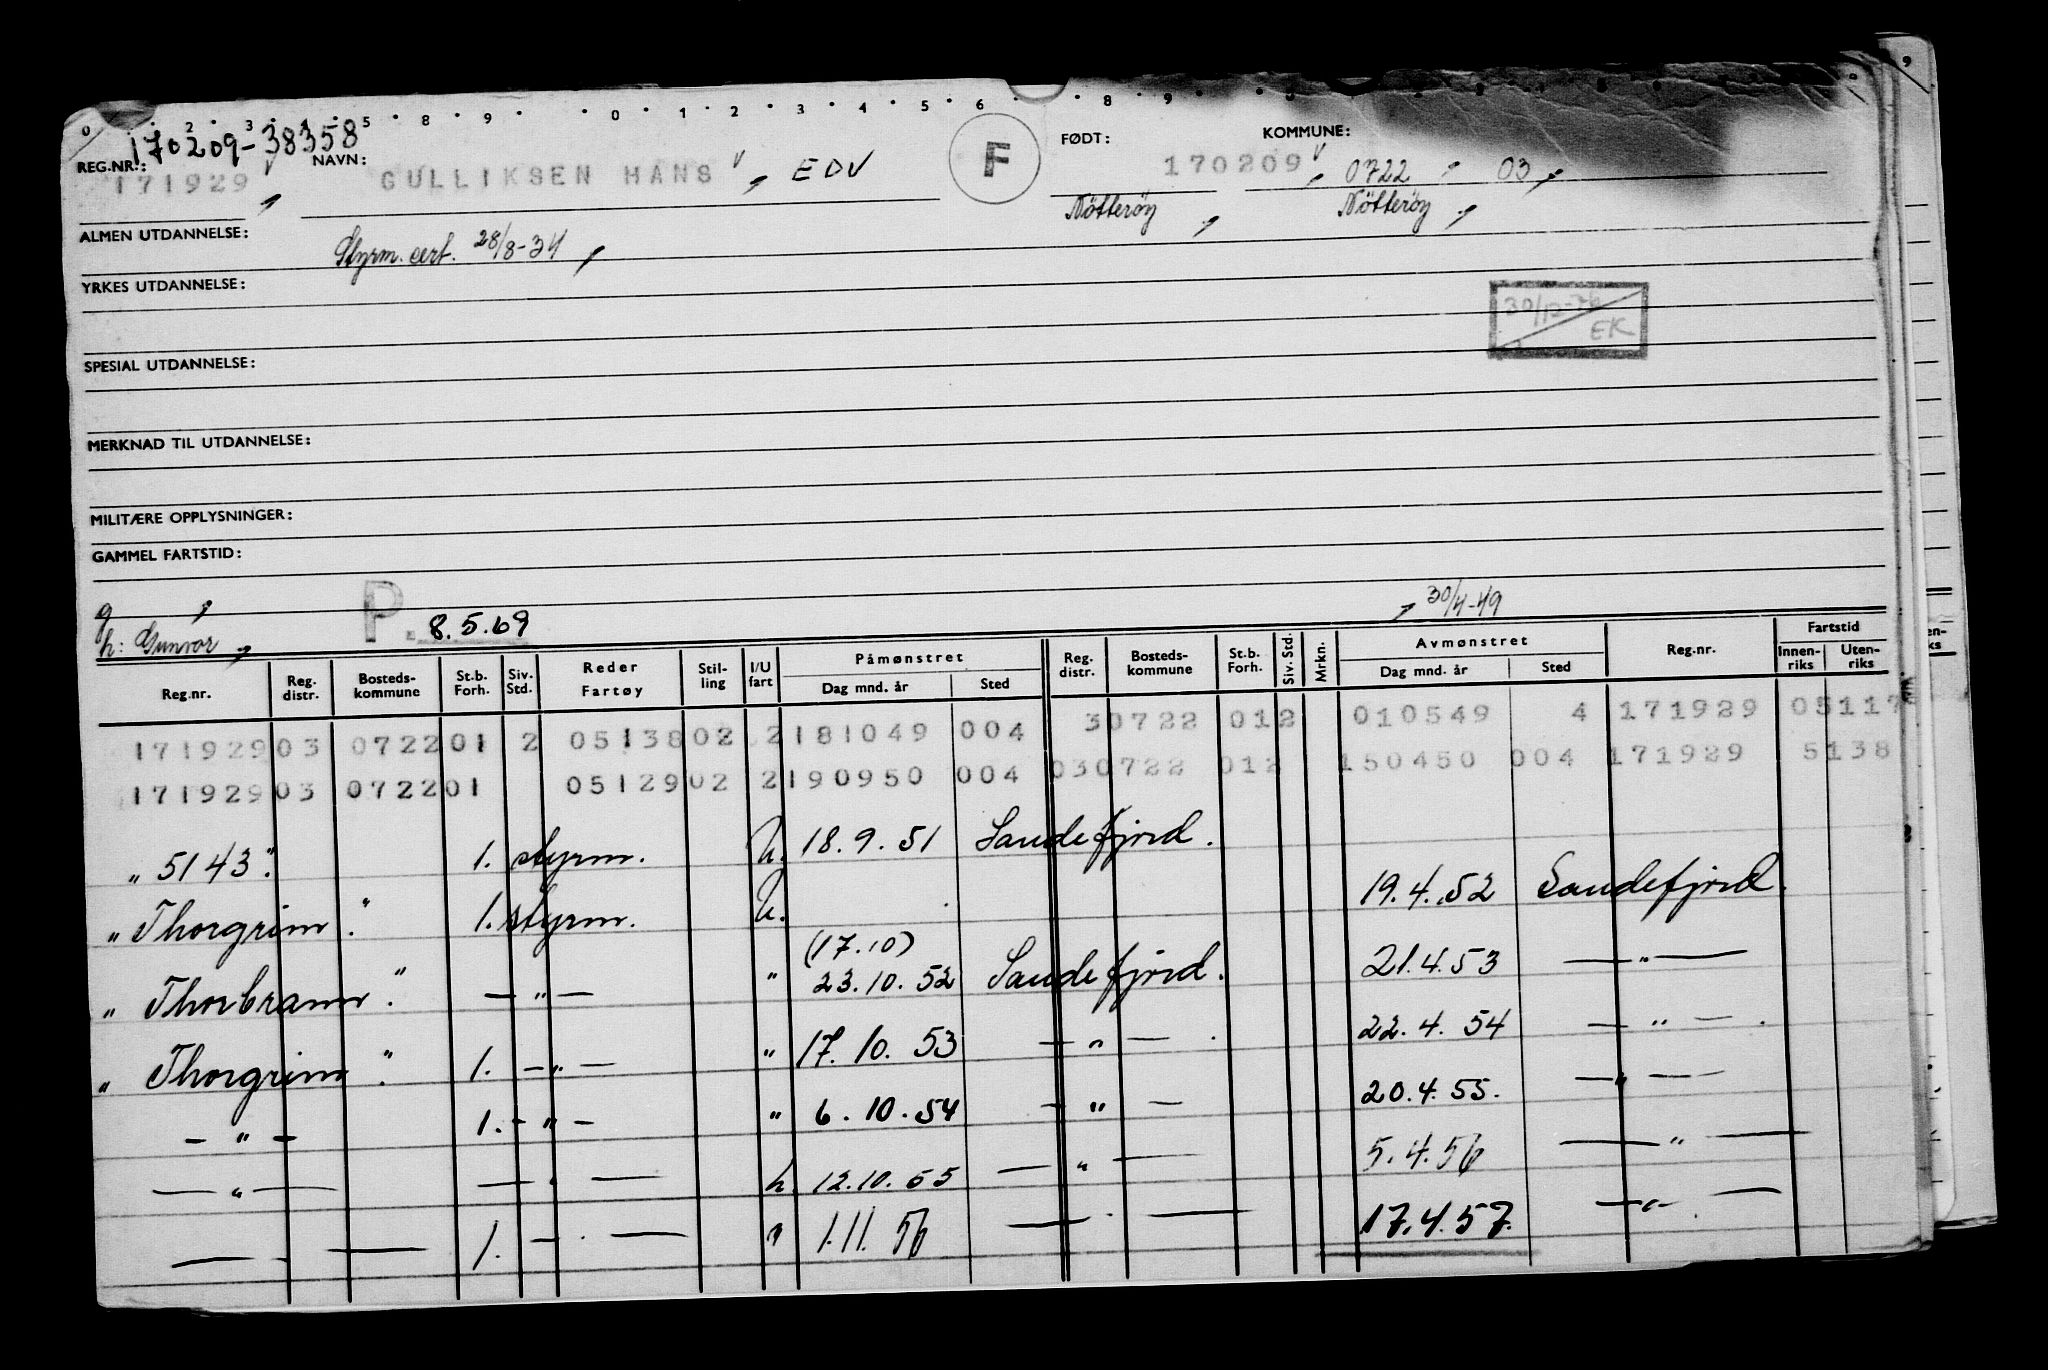 0 . 2 . 3 . 4 . 5 . 8 . 9 . 0 . 1 . 2 . 3 . 4 . 5 . 6 . 8 . 9
170209-38358
REG.NR.: NAVN: FØDT: KOMMUNE:
171929 GULLIKSEN HANS EDV F 170209 0722 03
Nötteröy Nötteröy
ALMEN UTDANNELSE:
Styrm. cert. 28/8-34
YRKES UTDANNELSE:
30/12-76
EK
SPESIAL UTDANNELSE:
MERKNAD TIL UTDANNELSE:
MILITÆRE OPPLYSNINGER:
GAMMEL FARTSTID:
g P. 8.5.69 30/4-49
h: Gunvor
Reg.nr. Reg. distr. Bosteds-kommune St.b. Forh. Siv. Std. Reder Fartøy Stil-ling I/U fart Påmønstret Dag mnd. år Sted Reg. distr. Bosteds-kommune St.b. Forh. Siv. Std. Mrkn. Avmønstret Dag mnd. år Sted Reg.nr. Fartstid Innen-riks Uten-riks
30722 012 010549 4 171929 05117
171929 03 0722 01 2 05138 02 2 181049 004 030722 012 150450 004 171929 5138
171929 03 0722 01 05129 02 2 190950 004
"5143". 1. styrm. U. 18.9.51 Sandefjord.
"Thorgrim". 1. styrm. U. 19.4.52 Sandefjord.
"Thorbrann". — " — " (17.10) 23.10.52 Sandefjord. 21.4.53 — " —
"Thorgrim". 1. — " — " 17.10.53 — " — . 22.4.54 — " — .
— " — 1. — " — " 6.10.54 — " — 20.4.55. — " —
— " — — " — U. 12.10.55 — " — 5.4.56 — " —
— " — 1. — " — " 1.11.56 — " — 17.4.57. — " — .